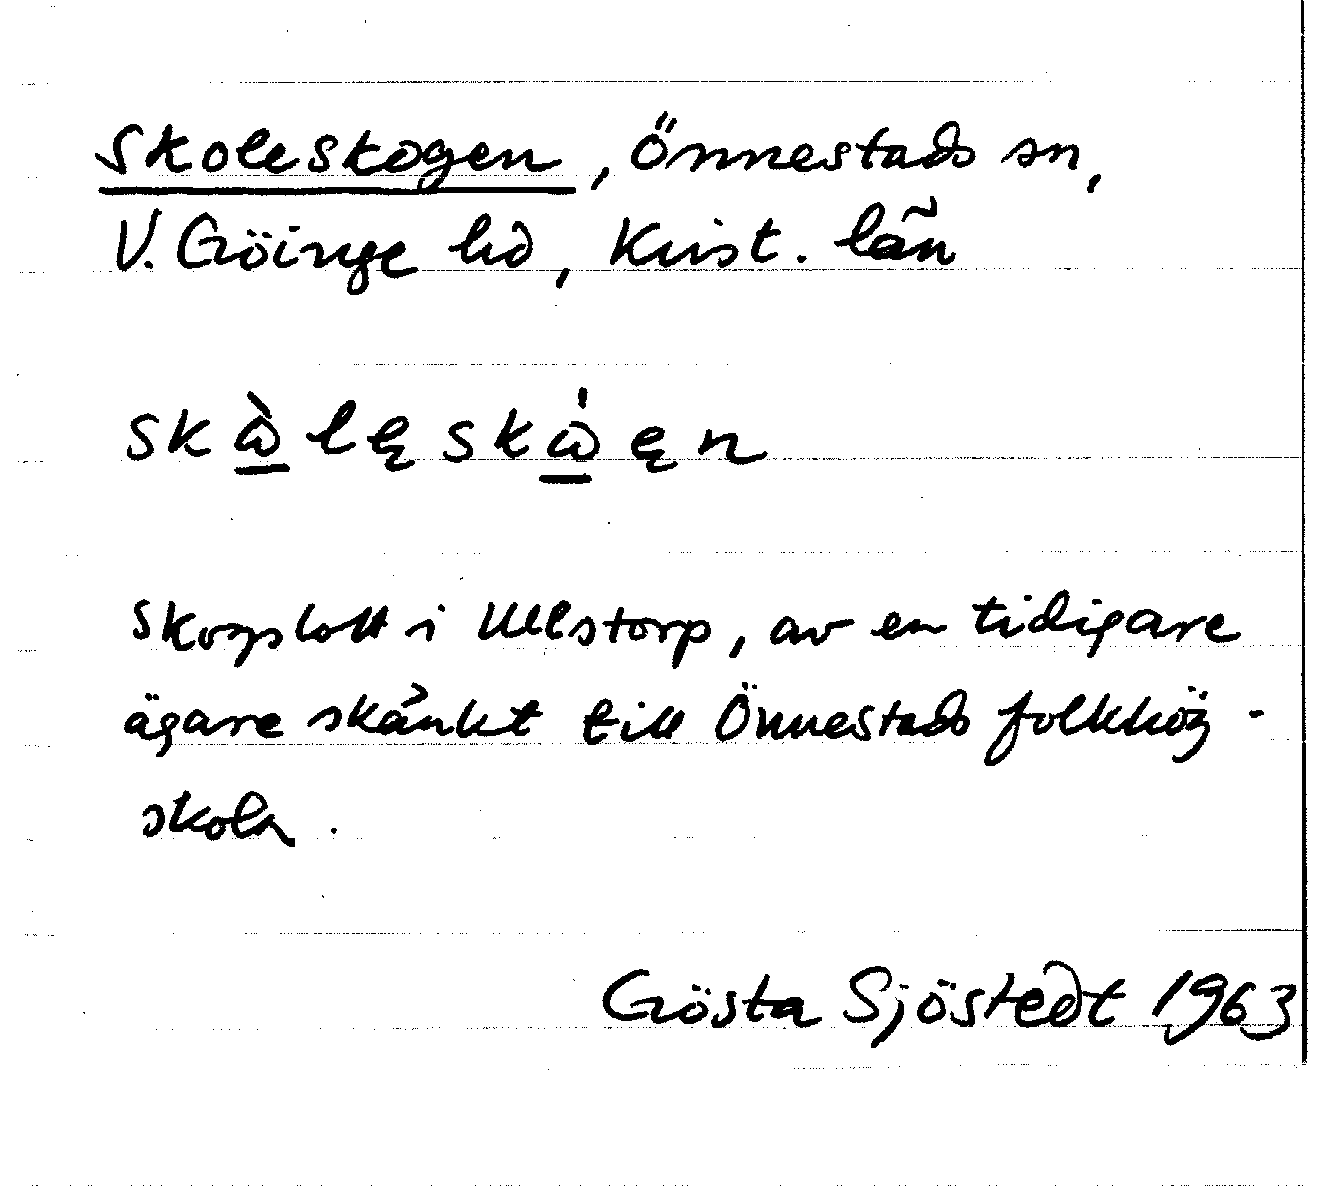 Skoleskogen, Önnestads sn,
V. Göinge hd, Krist. län
skὼ̱lęskώ̱ęn
Skogslott i Ullstorp, av en tidigare
ägare skänkt till Önnestads folkhög-
skola.
Gösta Sjöstedt 1963